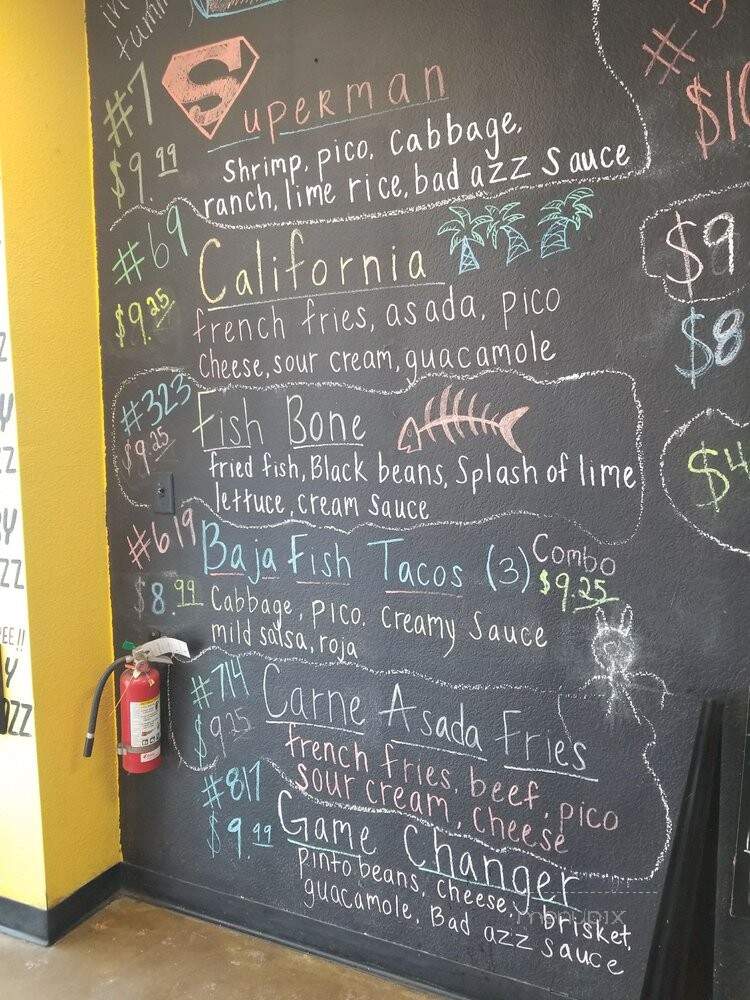 in
tummy
#7
$9.99
Superman
shrimp, pico, cabbage,
ranch, lime rice, bad azz sauce
#69
$9.25
California
french fries, asada, pico
cheese, sour cream, guacamole
#323
$9.25
Fish Bone
fried fish, Black beans, Splash of lime
lettuce, cream sauce
#619
$8.99
Baja Fish Tacos (3)
Combo
$9.25
Cabbage, pico, creamy sauce
mild salsa, roja
#714
$9.25
Carne Asada Fries
french fries, beef, pico
sour cream, cheese
#817
$9.99
Game Changer
pinto beans, cheese, brisket,
guacamole, Bad azz sauce
$9
$8
$4
menupix